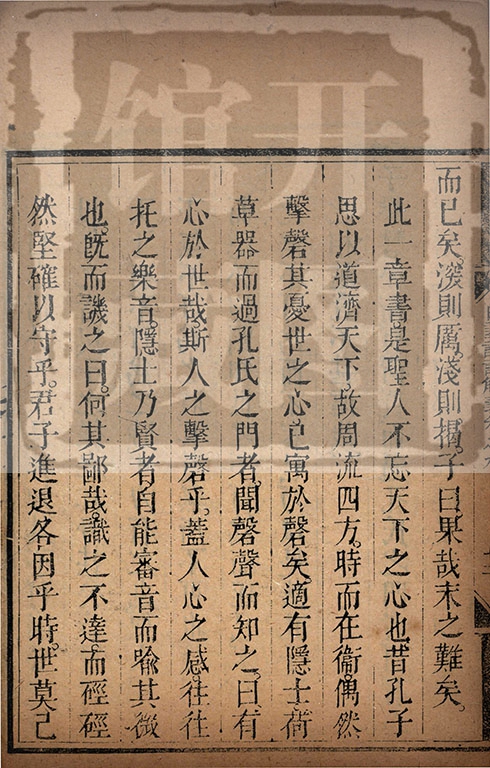 而已矣。深則厲。淺則揭。子曰果哉末之難矣。
此一章書。是聖人不忘天下之心也。昔孔子
思以道濟天下。故周流四方。時而在衞。偶然
擊磬。其憂世之心。已寓於磬矣。適有隱士荷
草器而過孔氏之門者。聞磬聲而知之。曰。有
心於世哉。斯人之擊磬乎。蓋人心之感。往往
托之樂音。隱士乃賢者。自能審音而喻其微
也。旣而譏之曰。何其鄙哉。識之不達。而硜硜
然堅確以守乎。君子進退。各因乎時。世莫己